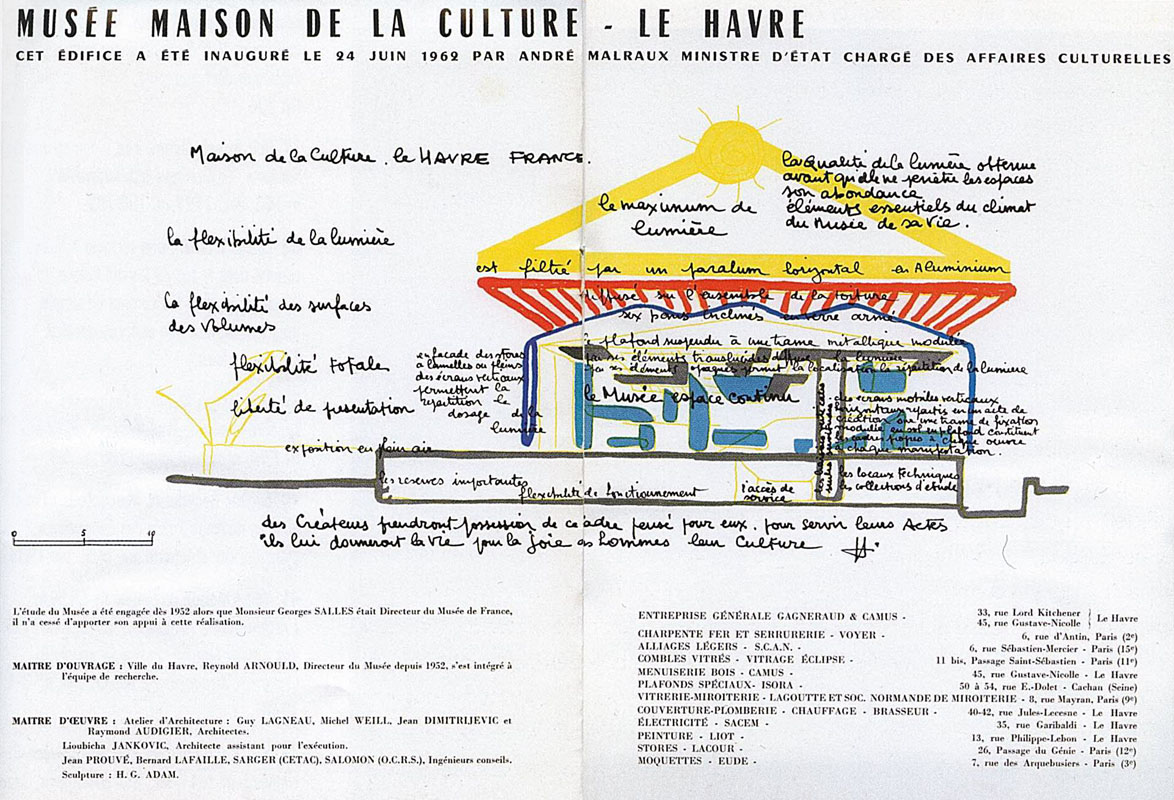 MUSÉE MAISON DE LA CULTURE - LE HAVRE
CET ÉDIFICE A ÉTÉ INAUGURÉ LE 24 JUIN 1962 PAR ANDRÉ MALRAUX MINISTRE D'ÉTAT CHARGÉ DES AFFAIRES CULTURELLES
Maison de la Culture . le HAVRE FRANCE.
la qualité de la lumière obtenue
avant qu'elle ne pénètre les espaces
son abondance
éléments essentiels du climat
du Musée de sa vie .
le maximum de
lumière
la flexibilité de la lumière
est filtré par un paralum horizontal en Aluminium
la flexibilité des surfaces
des volumes
diffusé sur l'ensemble de la toiture
six pans inclinés en verre armé
plafond suspendu à une trame métallique modulée
par ses éléments translucides diffuse la lumière
par ses éléments opaques permet la localisation la répartition de la lumière
flexibilité totale
liberté de présentation
en façade des stores
à lamelles ou pleins
des écrans verticaux
permettent la
répartition le
dosage de la
lumière
le Musée espace continu
des écrans mobiles verticaux
horizontaux répartis en un acte de
création sur une trame de fixation
modulée au sol au plafond constituent
les cadres propres à chaque œuvre
à chaque manifestation .
exposition en plein air
les reserves importantes
flexibilité de fonctionnement
l'accès de
service
les locaux techniques
les collections d'étude
des Créateurs prendront possession de ce cadre pensé pour eux . pour servir leurs Actes
ils lui donneront la vie pour la Joie des hommes leur Culture
0 5 10
L'étude du Musée a été engagée dès 1952 alors que Monsieur Georges SALLES était Directeur du Musée de France,
il n'a cessé d'apporter son appui à cette réalisation.
MAITRE D'OUVRAGE : Ville du Havre, Reynold ARNOULD, Directeur du Musée depuis 1952, s'est intégré à
l'équipe de recherche.
MAITRE D'ŒUVRE : Atelier d'Architecture : Guy LAGNEAU, Michel WEILL, Jean DIMITRIJEVIC et
Raymond AUDIGIER, Architectes.
Lioubicha JANKOVIC, Architecte assistant pour l'exécution.
Jean PROUVÉ, Bernard LAFAILLE, SARGER (CETAC), SALOMON (O.C.R.S.), Ingénieurs conseils.
Sculpture : H. G. ADAM.
ENTREPRISE GÉNÉRALE GAGNERAUD & CAMUS - 33, rue Lord Kitchener
45, rue Gustave-Nicolle } Le Havre
CHARPENTE FER ET SERRURERIE - VOYER - 6, rue d'Antin, Paris (2e)
ALLIAGES LÉGERS - S.C.A.N. - 6, rue Sébastien-Mercier - Paris (15e)
COMBLES VITRÉS - VITRAGE ÉCLIPSE - 11 bis, Passage Saint-Sébastien - Paris (11e)
MENUISERIE BOIS - CAMUS - 45, rue Gustave-Nicolle - Le Havre
PLAFONDS SPÉCIAUX- ISORA - 50 à 54, rue E.-Dolet - Cachan (Seine)
VITRERIE-MIROITERIE - LAGOUTTE ET SOC. NORMANDE DE MIROITERIE - 8, rue Mayran, Paris (9e)
COUVERTURE-PLOMBERIE - CHAUFFAGE - BRASSEUR - 40-42, rue Jules-Lecesne - Le Havre
ÉLECTRICITÉ - SACEM - 35, rue Garibaldi - Le Havre
PEINTURE - LIOT - 13, rue Philippe-Lebon - Le Havre
STORES - LACOUR - 26, Passage du Génie - Paris (12e)
MOQUETTES - EUDE - 7, rue des Arquebusiers - Paris (3e)